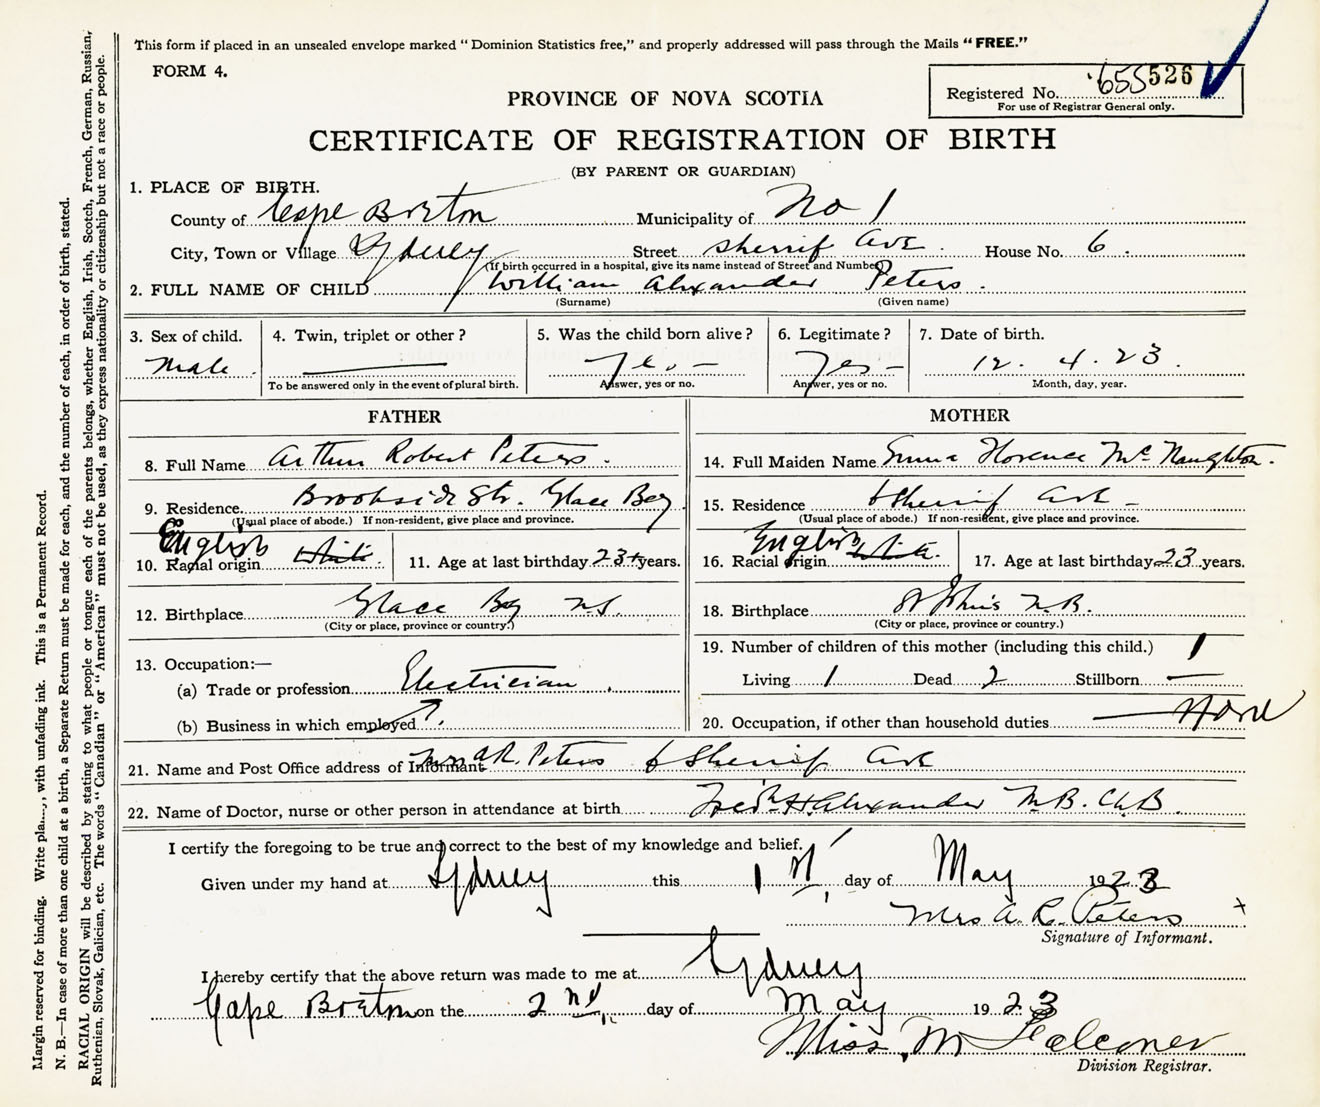 This form if placed in an unsealed envelope marked “Dominion Statistics free,” and properly addressed will pass through the Mails “FREE.”
FORM 4.
Registered No. 655 526
For use of Registrar General only.
PROVINCE OF NOVA SCOTIA
CERTIFICATE OF REGISTRATION OF BIRTH
(BY PARENT OR GUARDIAN)
1. PLACE OF BIRTH.
County of Cape Breton Municipality of No 1
City, Town or Village Sydney Street Sherrif Ave. House No. 6.
(If birth occurred in a hospital, give its name instead of Street and Number)
2. FULL NAME OF CHILD William Alexander Peters.
(Surname) (Given name)
3. Sex of child. 4. Twin, triplet or other? 5. Was the child born alive? 6. Legitimate? 7. Date of birth.
Male Yes Yes 12. 4. 23.
To be answered only in the event of plural birth. Answer, yes or no. Answer, yes or no. Month, day, year.
FATHER
8. Full Name Arthur Robert Peters.
9. Residence Brookside Str. Glace Bay
(Usual place of abode.) If non-resident, give place and province.
English
10. Racial origin White 11. Age at last birthday 23 years.
12. Birthplace Glace Bay N.S.
(City or place, province or country.)
13. Occupation:—
(a) Trade or profession Electrician
(b) Business in which employed
MOTHER
14. Full Maiden Name Emma Florence McNaughton.
15. Residence 6 Sherrif Ave
(Usual place of abode.) If non-resident, give place and province.
English
16. Racial origin White 17. Age at last birthday 23 years.
18. Birthplace St John's N.B.
(City or place, province or country.)
19. Number of children of this mother (including this child.) 1
Living 1 Dead 2 Stillborn —
20. Occupation, if other than household duties None
21. Name and Post Office address of Informant Mrs A R. Peters 6 Sherrif Ave
22. Name of Doctor, nurse or other person in attendance at birth Fredk H Alexander M.B. Ch.B.
I certify the foregoing to be true and correct to the best of my knowledge and belief.
Given under my hand at Sydney this 1st day of May 1923
Mrs A. R. Peters x
Signature of Informant.
I hereby certify that the above return was made to me at Sydney
Cape Breton on the 2nd day of May 1923
Miss M Falconer
Division Registrar.
Margin reserved for binding. Write , with unfading ink. This is a Permanent Record.
N. B.—In case of more than one child at a birth, a Separate Return must be made for each, and the number of each, in order of birth, stated.
RACIAL ORIGIN will be described by stating to what people or tongue each of the parents belongs, whether English, Irish, Scotch, French, German, Russian,
Ruthenian, Slovak, Galician, etc. The words “Canadian” or “American” must not be used, as they express nationality or citizenship but not a race or people.